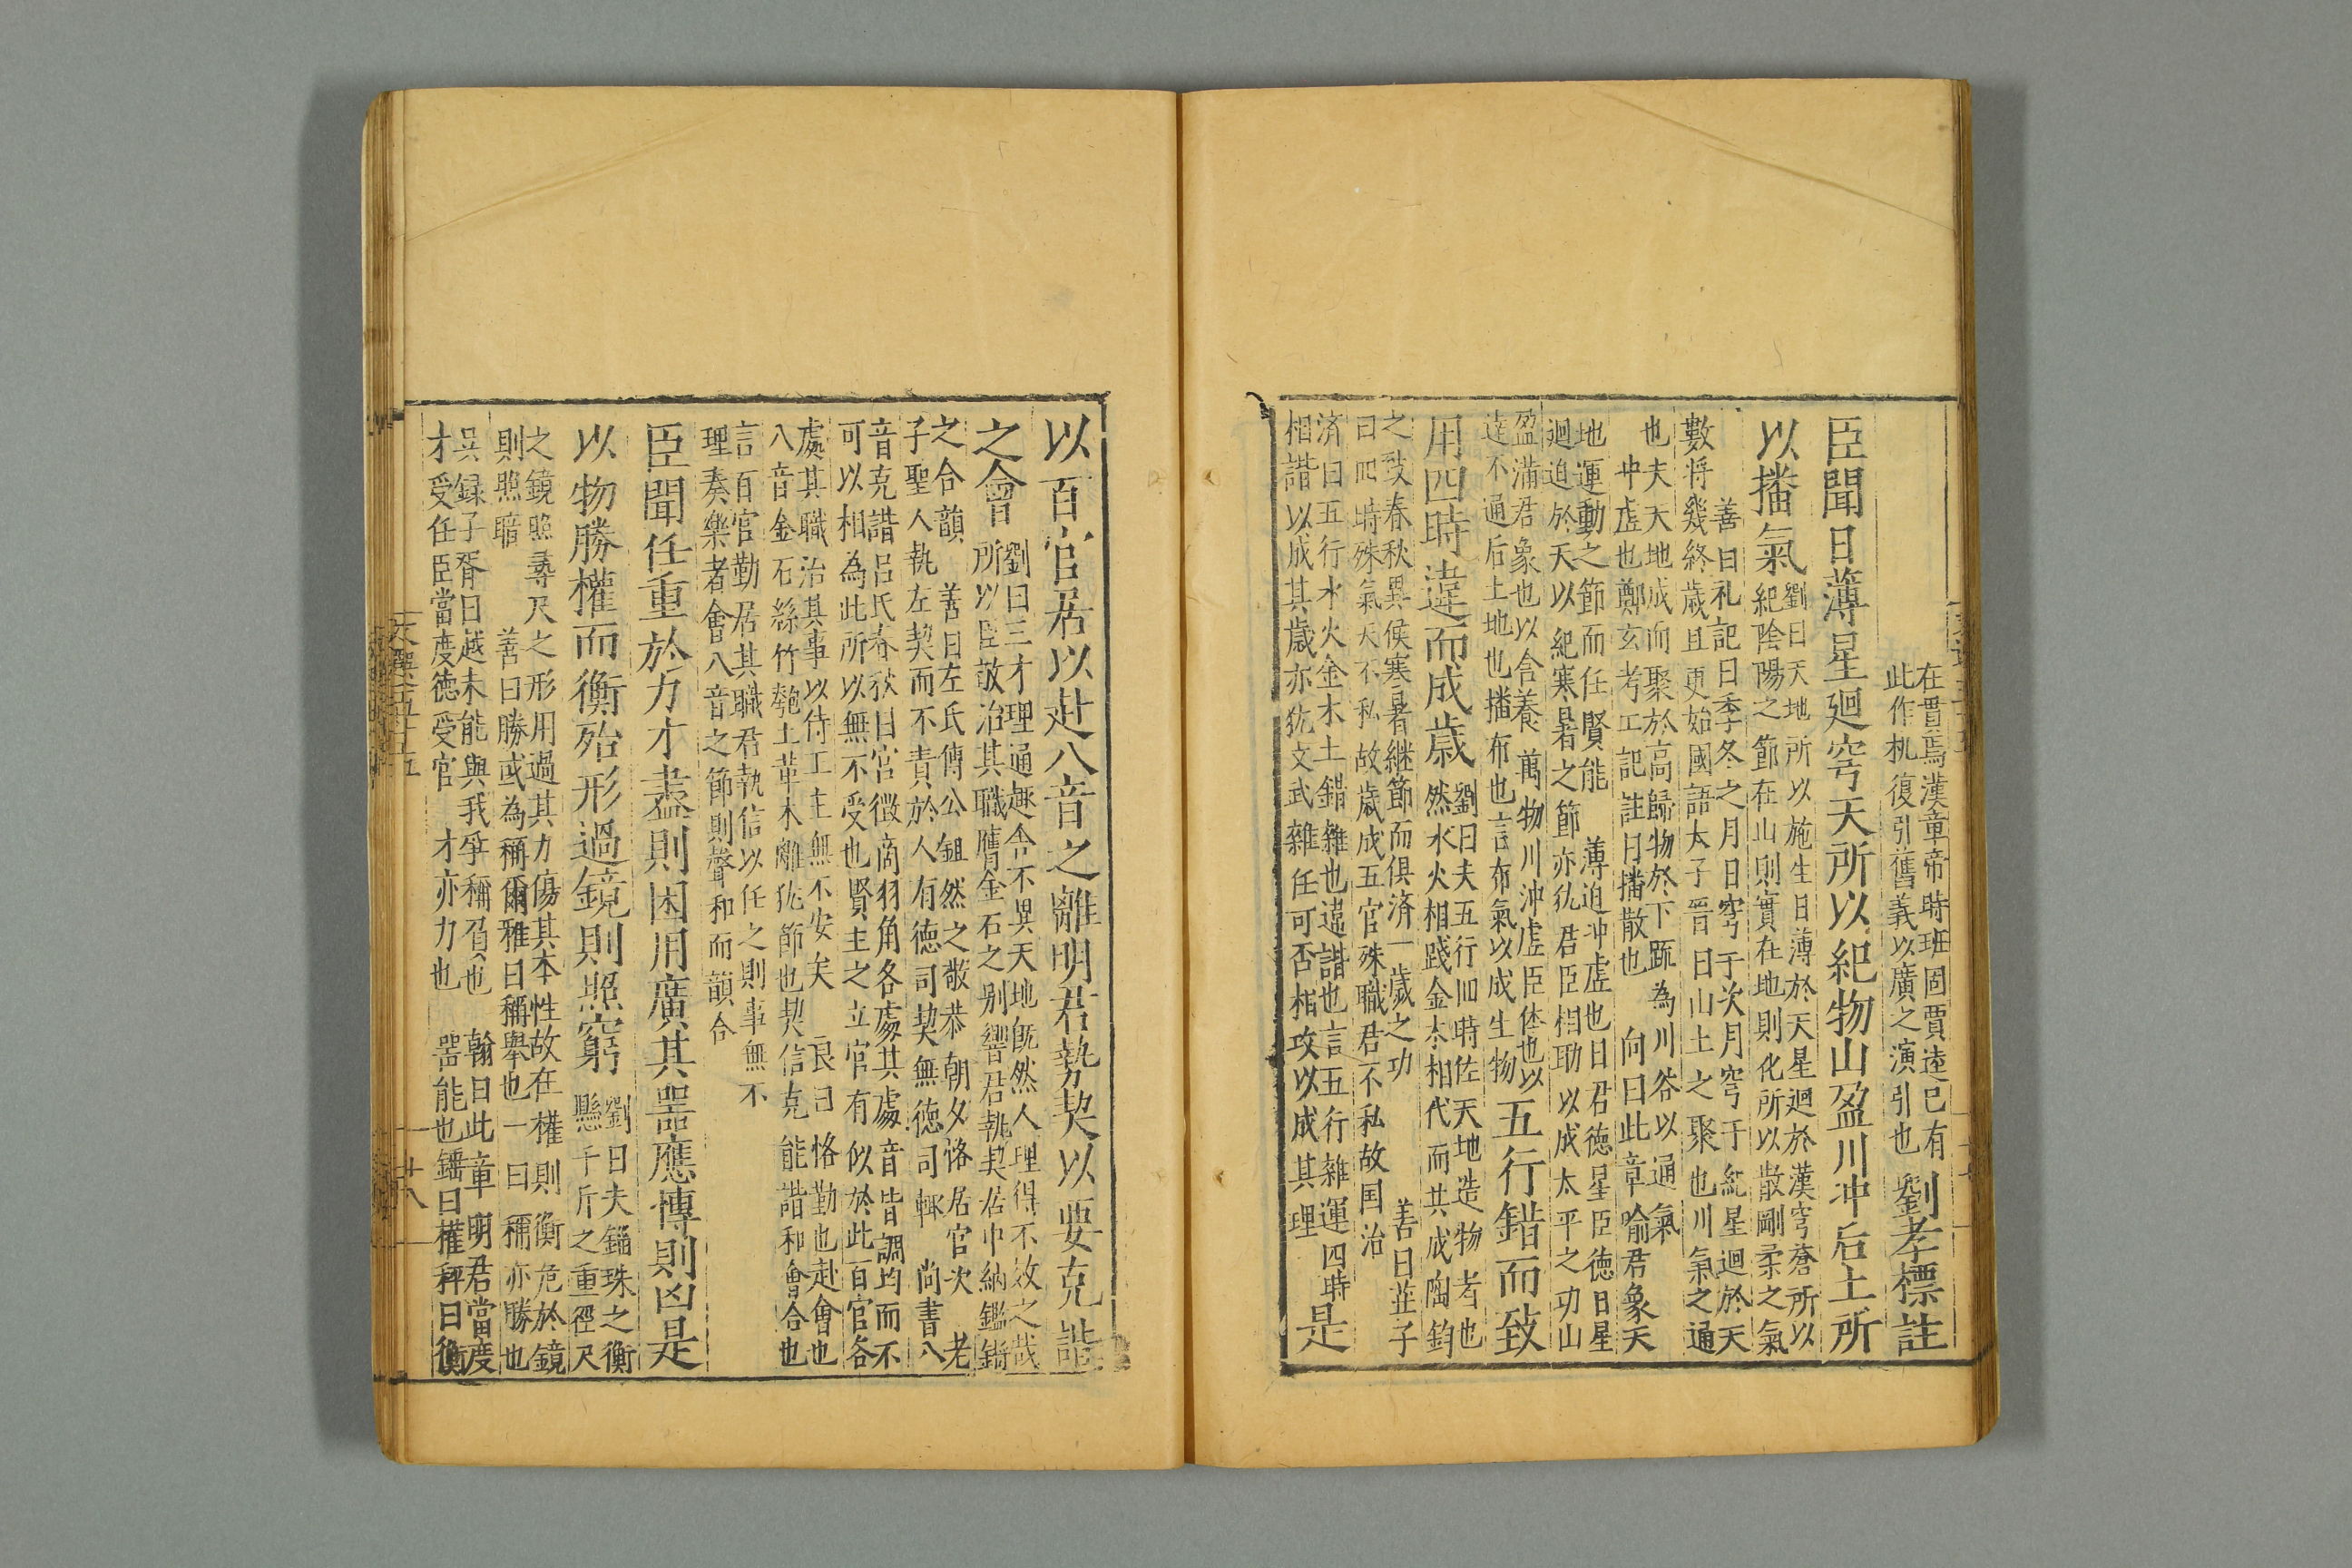 在貫焉漢章帝時班固賈逵已有
此作机復引舊義以廣之演引也
劉孝標註
臣聞日薄星廻穹天所以紀物山盈川冲后土所
以播氣
劉曰天地所以施生日薄於天星廻於漢穹蒼所以
紀陰陽之節在山則實在地則化所以散剛柔之氣
善曰礼記曰季冬之月日穹于次月穹于紀星廻於天
數将幾終歲且更始國語太子晉曰山土之聚也川氣之通
也夫天地成而聚於高歸物於下䟽為川谷以通氣
冲虛也鄭玄考工記註曰播散也　向曰此章喻君象天
地運動之節而任賢能　薄迫冲虛也日君德星臣德日星
廻迫於天以紀寒暑之節亦犹君臣相助以成太平之功山
盈滿君象也以含養萬物川沖虛臣体也以
逹不通后土地也播布也言布氣以成生物
五行錯而致
用四時違而成歲
劉曰夫五行四時佐天地造物者也
然水火相踐金木相代而共成陶鈞
之致春秋異候寒暑継節而俱済一歲之功　善曰莊子
曰四時殊氣天不私故歲成五官殊職君不私故国治
済曰五行水火金木土錯雜也違諧也言五行雜運四時
相諧以成其歲亦犹文武雜任可否相攻以成其理
是
以百官居以赴八音之離明君執契以要克諧
之會
劉曰三才理通趣舍不異天地旣然人理得不效之哉
所以臣敬治其職膺金石之別響君執契居中納鏗鏘
之合韻　善曰左氏傳公鉏然之敬恭朝夕恪居官次　老
子聖人執左契而不責於人有德司契無德司轍　尚書八
音克諧呂氏春秋曰宮徵商羽角各處其處音皆調均而不
可以相為此所以無不受也賢主之立官有似於此百官各
處其職治其事以侍工主無不安矣　良曰恪勤也赴會也
八音金石絲竹匏土革木離犹節也契信克能諧和會合也
言百官勤居其職君執信以任之則事無不
理奏樂者會八音之節則聲和而韻合
臣聞任重於力才盡則困用廣其噐應博則凶是
以物勝權而衡殆形過鏡則照窮
劉曰夫錙珠之衡
懸千斤之重徑尺
之鏡照尋尺之形用過其力傷其本性故在權則衡危於鏡
則照暗　善曰勝或為稱爾雅曰稱舉也一曰稱亦勝也
吴録子胥曰越未能與我爭稱負也　翰曰此章明君當度
才受任臣當度德受官　才亦力也　噐能也鐇曰權秤曰衡
文選五十五
廿八